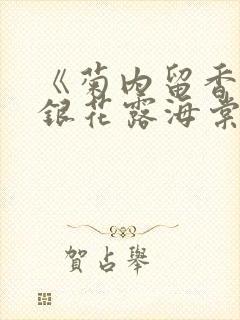 《菊内留香
銀花露海棠
賀占舉